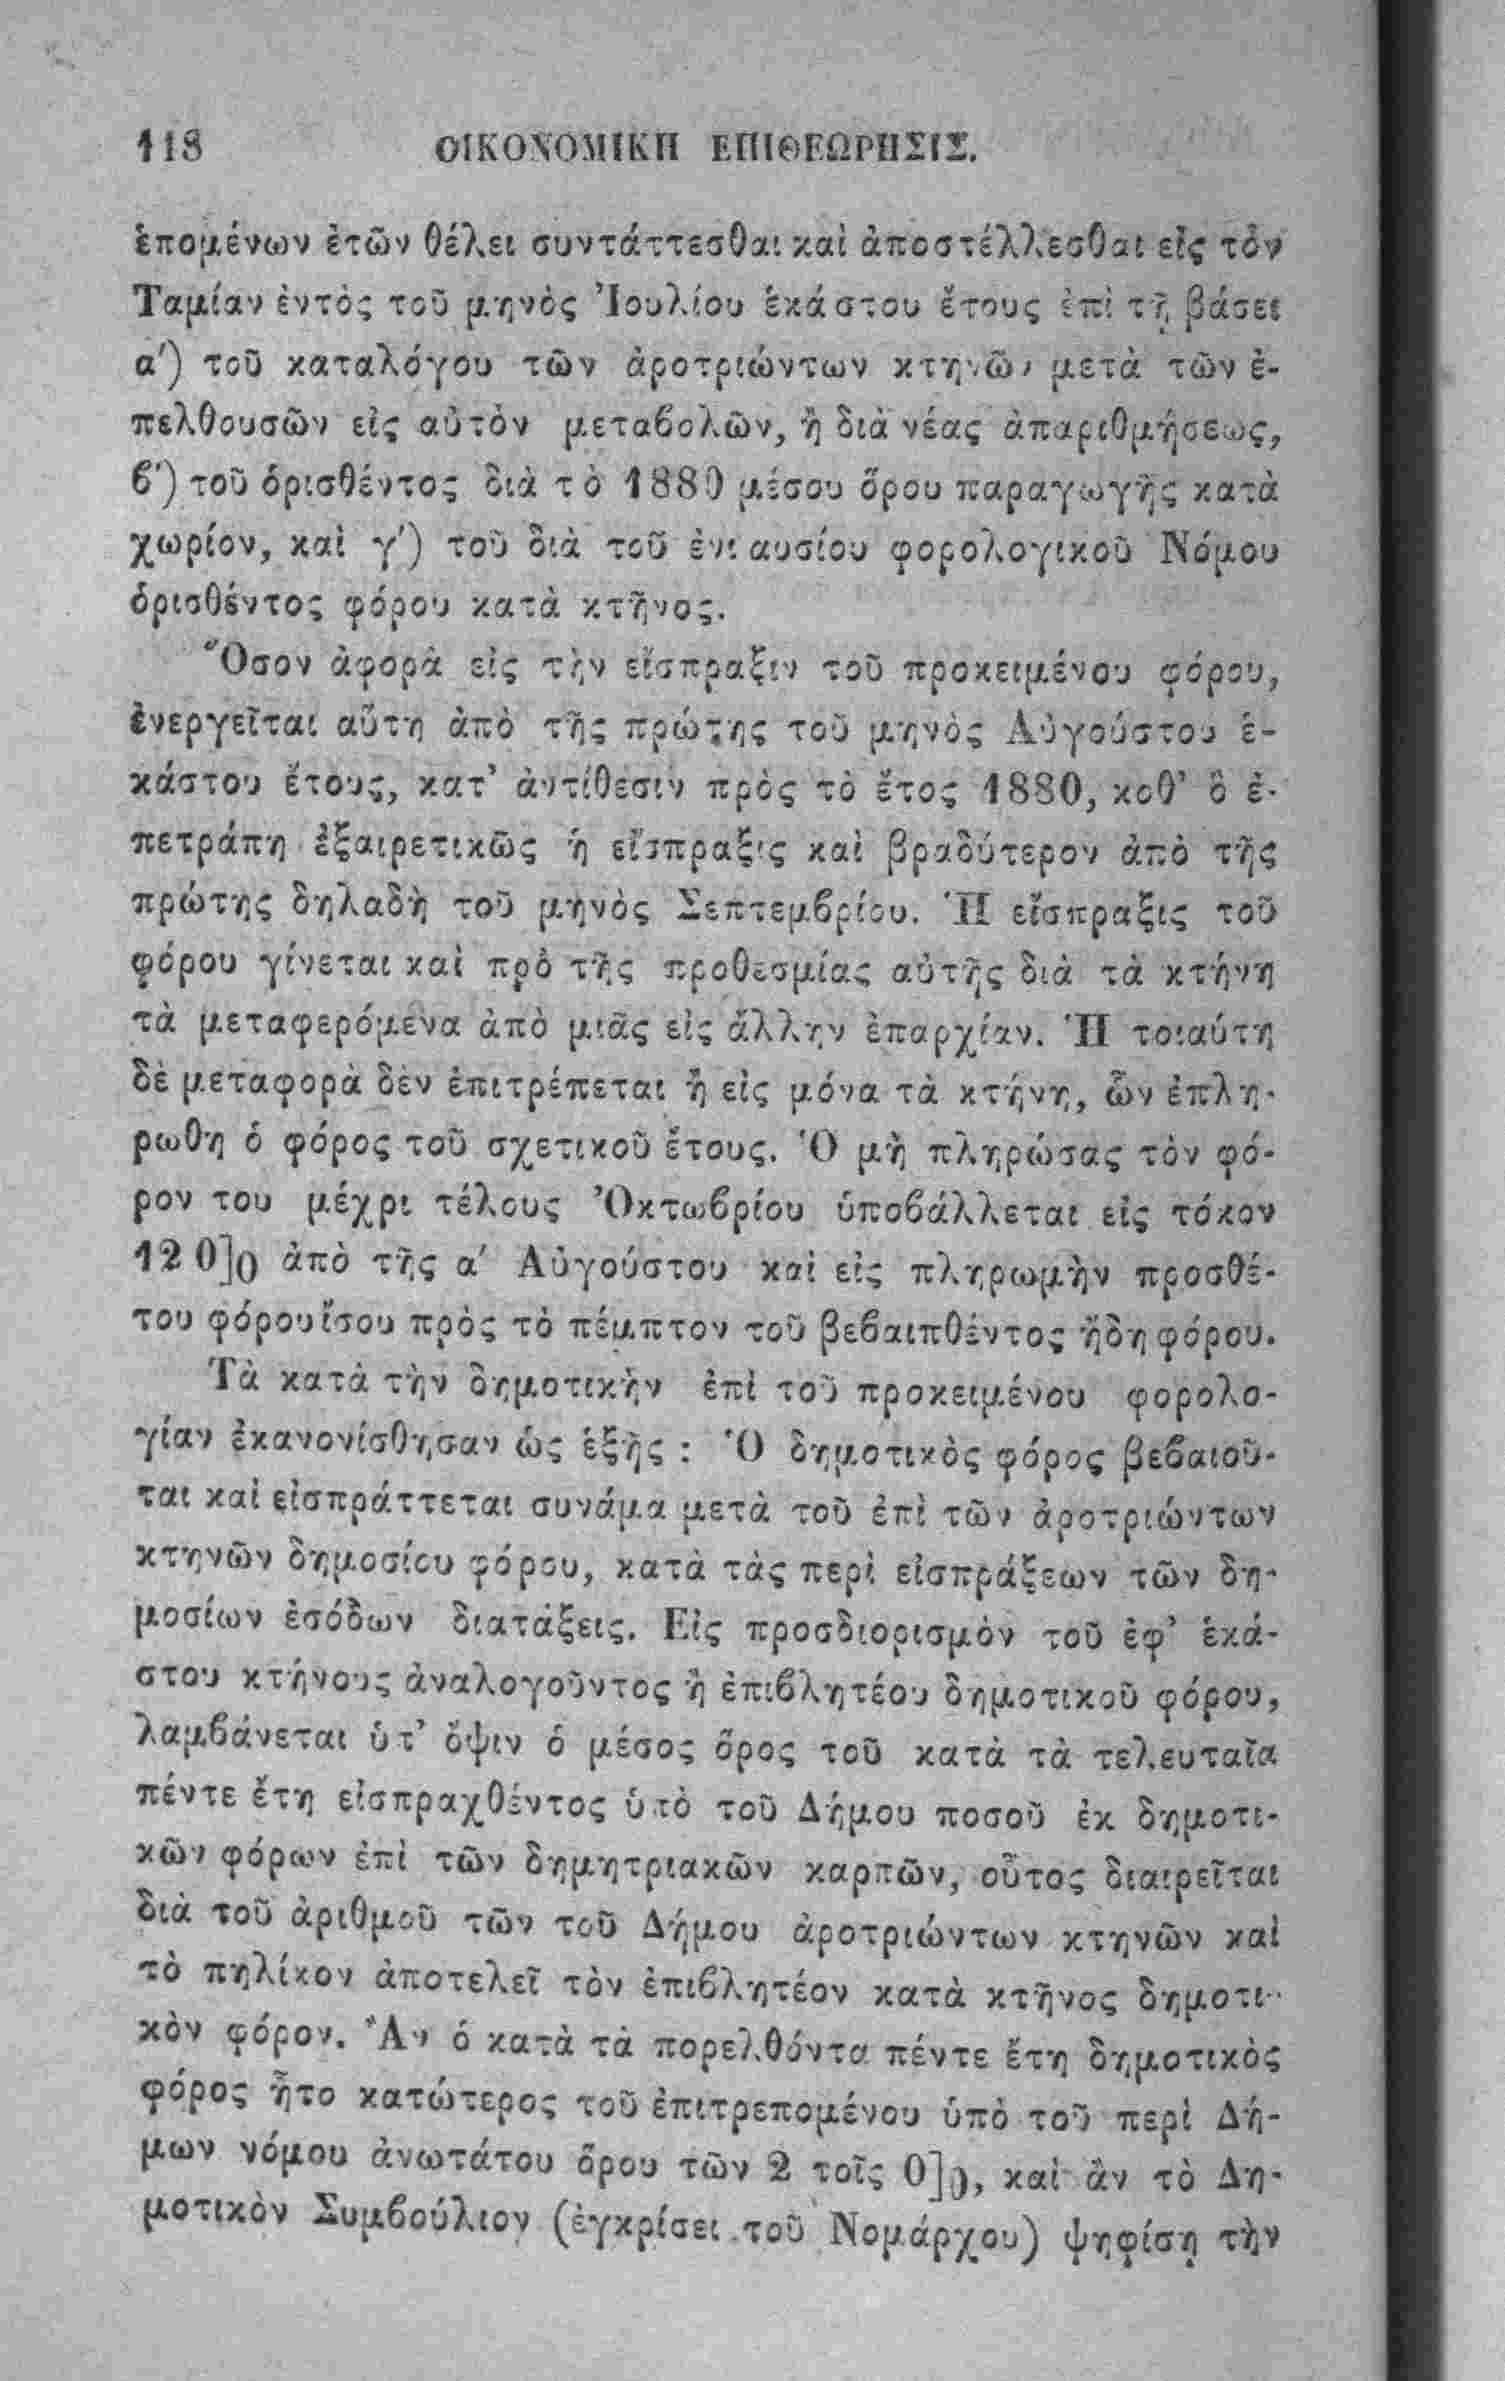 118 ΟΙΚΟΝΟΜΙΚΗ ΕΠΙΘΕΩΡΗΣΙΣ.
ἑπομένων ἐτῶν θέλει συντάττεσθαι καὶ ἀποστέλλεσθαι εἰς τὸν
Ταμίαν ἐντὸς τοῦ μηνὸς Ἰουλίου ἑκάστου ἔτους ἐπὶ τῇ βάσει
α′) τοῦ καταλόγου τῶν ἀροτριώντων κτηνῶν μετὰ τῶν ἐ-
πελθουσῶν εἰς αὐτὸν μεταβολῶν, ἢ διὰ νέας ἀπαριθμήσεως,
β′) τοῦ ὁρισθέντος διὰ τὸ 1880 μέσου ὅρου παραγωγῆς κατὰ
χωρίον, καὶ γ′) τοῦ διὰ τοῦ ἐνιαυσίου φορολογικοῦ Νόμου
ὁρισθέντος φόρου κατὰ κτῆνος.
Ὅσον ἀφορᾷ εἰς τὴν εἴσπραξιν τοῦ προκειμένου φόρου,
ἐνεργεῖται αὕτη ἀπὸ τῆς πρώτης τοῦ μηνὸς Αὐγούστου ἑ-
κάστου ἔτους, κατ’ ἀντίθεσιν πρὸς τὸ ἔτος 1880, καθ’ ὃ ἐ-
πετράπη ἐξαιρετικῶς ἡ εἴσπραξις καὶ βραδύτερον ἀπὸ τῆς
πρώτης δηλαδὴ τοῦ μηνὸς Σεπτεμβρίου. Ἡ εἴσπραξις τοῦ
φόρου γίνεται καὶ πρὸ τῆς προθεσμίας αὐτῆς διὰ τὰ κτήνη
τὰ μεταφερόμενα ἀπὸ μιᾶς εἰς ἄλλην ἐπαρχίαν. Ἡ τοιαύτη
δὲ μεταφορὰ δὲν ἐπιτρέπεται ἢ εἰς μόνα τὰ κτήνη, ὧν ἐπλη-
ρωθη ὁ φόρος τοῦ σχετικοῦ ἔτους. Ὁ μὴ πληρώσας τὸν φό-
ρον του μέχρι τέλους Ὀκτωβρίου ὑποβάλλεται εἰς τόκον
12 0]0 ἀπὸ τῆς α′ Αὐγούστου καὶ εἰς πληρωμὴν προσθέ-
του φόρου ἴσου πρὸς τὸ πέμπτον τοῦ βεβαιπθέντος ἤδη φόρου.
Τὰ κατὰ τὴν δημοτικὴν ἐπὶ τοῦ προκειμένου φορολο-
γίαν ἐκανονίσθησαν ὡς ἑξῆς : Ὁ δημοτικὸς φόρος βεβαιοῦ-
ται καὶ εἰσπράττεται συνάμα μετὰ τοῦ ἐπὶ τῶν ἀροτριώντων
κτηνῶν δημοσίου φόρου, κατὰ τὰς περὶ εἰσπράξεων τῶν δη-
μοσίων ἐσόδων διατάξεις. Εἰς προσδιορισμὸν τοῦ ἐφ’ ἑκά-
στου κτήνους ἀναλογοῦντος ἢ ἐπιβλητέου δημοτικοῦ φόρου,
λαμβάνεται ὑπ’ ὄψιν ὁ μέσος ὅρος τοῦ κατὰ τὰ τελευταῖα
πέντε ἔτη εἰσπραχθέντος ὑπὸ τοῦ Δήμου ποσοῦ ἐκ δημοτι-
κῶν φόρων ἐπὶ τῶν δημητριακῶν καρπῶν, οὗτος διαιρεῖται
διὰ τοῦ ἀριθμοῦ τῶν τοῦ Δήμου ἀροτριώντων κτηνῶν καὶ
τὸ πηλίκον ἀποτελεῖ τὸν ἐπιβλητέον κατὰ κτῆνος δημοτι-
κὸν φόρον. Ἂν ὁ κατὰ τὰ πορελθόντα πέντε ἔτη δημοτικὸς
φόρος ἦτο κατώτερος τοῦ ἐπιτρεπομένου ὑπὸ τοῦ περὶ Δή-
μων νόμου ἀνωτάτου ὅρου τῶν 2 τοῖς 0]0, καὶ ἂν τὸ Δη-
μοτικὸν Συμβούλιον (ἐγκρίσει τοῦ Νομάρχου) ψηφίσῃ τὴν